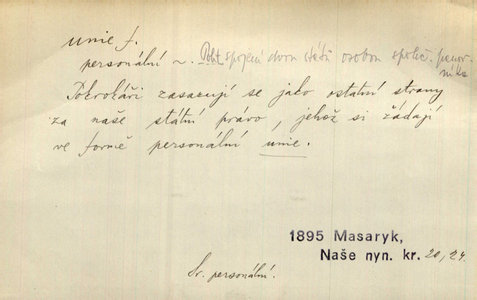 unie f.
personální ~. Polit. spojení dvou států osobou společ. panov-
níka
Pokrokáři zasazují se jako ostatní strany
za naše státní právo, jehož si žádají
ve formě personální unie.
1895 Masaryk,
Naše nyn. kr. 20, 24.
Sv. personální.